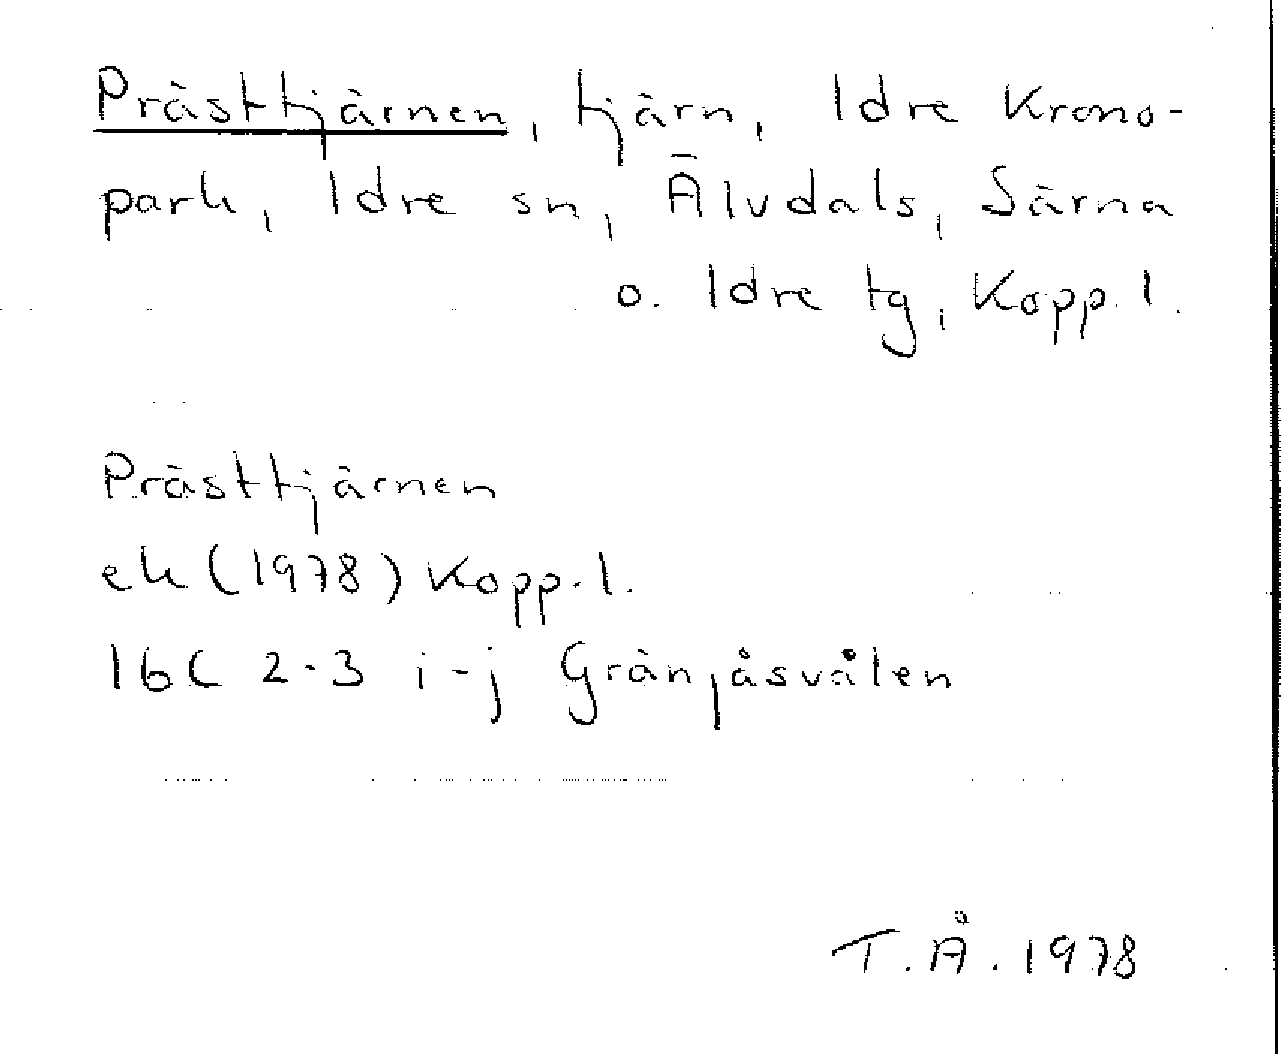 Prästtjärnen, tjärn, Idre Krono-
park, Idre sn, Älvdals, Särna
o. Idre tg, Kopp. l.
Prästtjärnen
ek (1978) Kopp. l.
16C 2-3 i-j Gränjåsvålen
T. Å. 1978